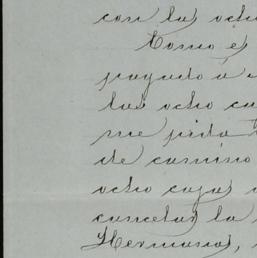 con las ocho
Como es
pagado a
las ocho ca
me pida
de camino
ocho cajas
cancelar la
Hermanos,